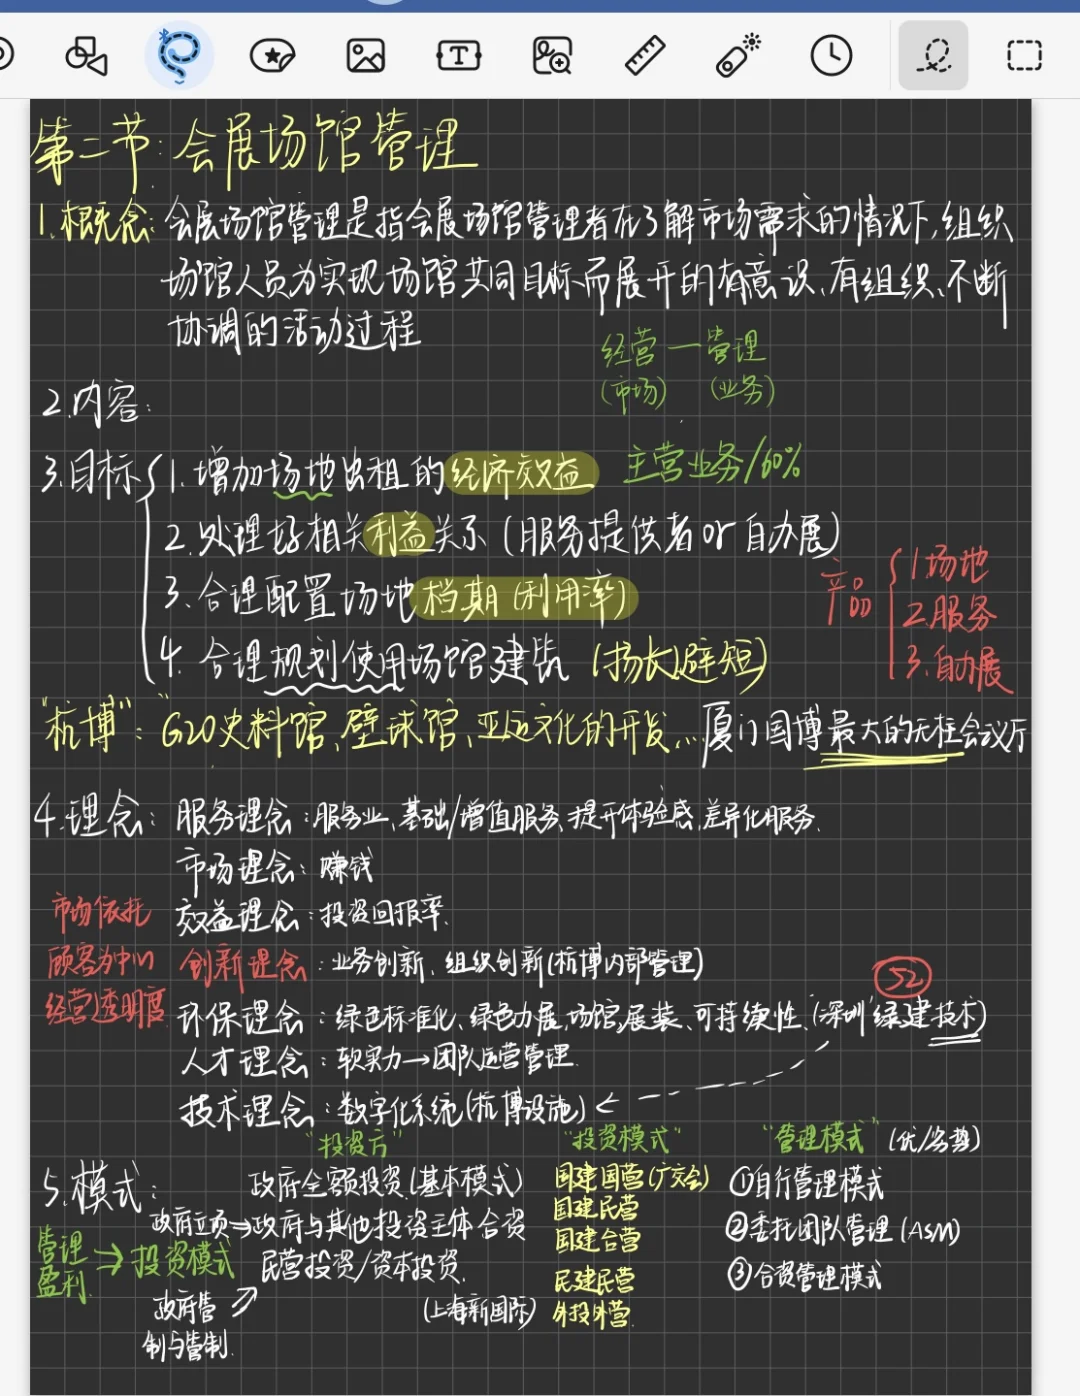 第二节：会展场馆管理
1.概念：会展场馆管理是指会展场馆管理者在了解市场需求的情况下,组织
场馆人员为实现场馆共同目标而展开的有意识、有组织、不断
协调的活动过程
经营—管理
(市场) (业务)
2.内容：
3.目标 1.增加场地出租的经济效益 主营业务/60%
2.处理好相关利益关系(服务提供者or自办展)
3.合理配置场地档期(利用率)
4.合理规划使用场馆建筑(扬长避短)
产品 1.场地
2.服务
3.自办展
"杭博"：G20史料馆、壁球馆、亚运文化的开发... 厦门国博最大的无柱会议厅
4.理念：服务理念：服务业、基础/增值服务、提升体验感、差异化服务.
市场理念：赚钱
效益理念：投资回报率.
创新理念：业务创新、组织创新(杭博内部管理)
环保理念：绿色标准化、绿色办展,场馆,展装、可持续性.(深圳"绿建技术)
人才理念：软实力→团队运营管理.
技术理念：数字化系统(杭博设施)
市场依托
顾客为中心
经营透明度
52
"投资方" "投资模式" "管理模式"(优/劣势)
5.模式：
政府全额投资(基本模式)
政府立项→政府与其他投资主体合资
民营投资/资本投资.
(上海新国际)
管理盈利.→投资模式
政府管
制与管制.
国建国营(广交会)
国建民营
国建合营
民建民营
外投外营
①自行管理模式
②委托团队管理(ASM)
③合资管理模式